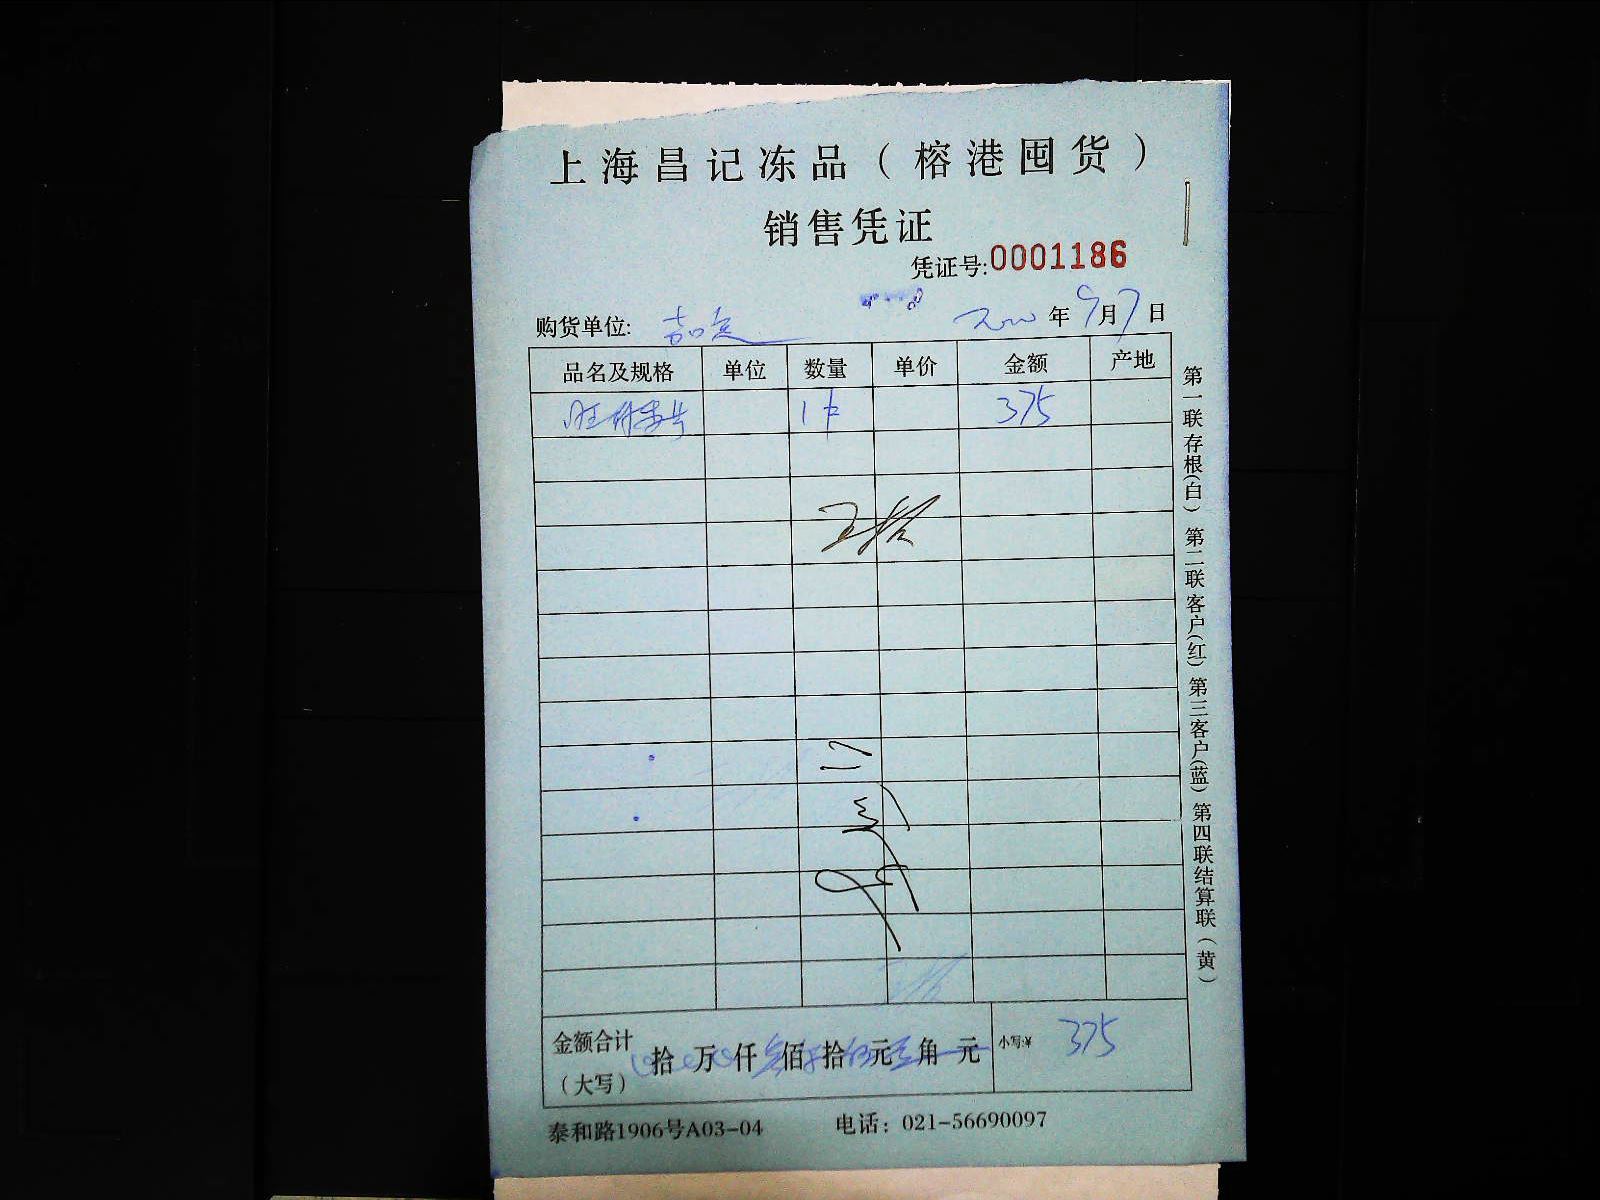 上海昌记冻品（榕港囤货）
销售凭证
凭证号:0001186
购货单位: 嘉定 年9月7日
品名及规格 单位 数量 单价 金额 产地
1件 375
金额合计（大写） 拾 万 仟 佰 拾 元 角 元 小写:¥ 375
泰和路1906号A03-04 电话：021-56690097
第一联存根(白) 第二联客户(红) 第三客户(蓝) 第四联结算联(黄)